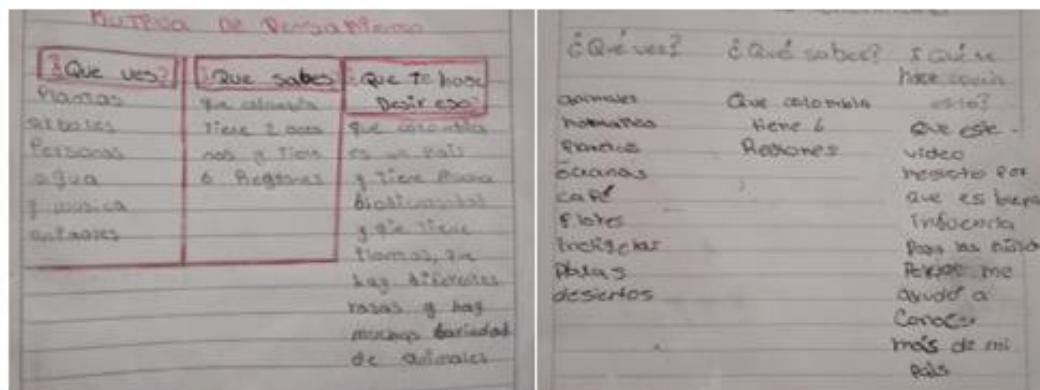 Rutina de Pensamiento
¿Que ves?
Plantas
arboles
Personas
agua
y musica
animales
¿Que sabes
que colombia
Tiene 2 ocea
nos y Tiene
6 Regiones
¿Que Te hase
Desir eso?
que colombia
es un Pais
y Tiene mucha
biodiversidad
y que Tiene
llamas, que
hay diferentes
rasas y hay
muchas bariedad
de animales
¿Qué ves?
animales
océanos
café
flores
Indigenas
Palas
desiertos
¿Qué sabes?
Que colombia
tiene 6
Regiones
¿Qué te
hace decir
esto?
Que este
video
Por
que es buena
Influencia
Para las niños
me
ayudó a
Conocer
más de mi
País